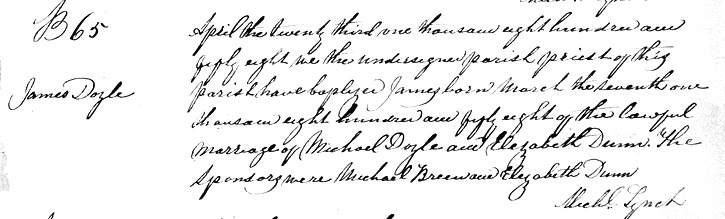 B65
James Doyle
April the twenty third one thousand eight hundred and
fifty eight we the undersigned parish priest of this
parish have baptized James born March the seventh one
thousand eight hundred and fifty eight of the lawful
marriage of Michael Doyle and Elizabeth Dunn. The
Sponsors were Michael Breen and Elizabeth Dunn
Michl. Lynch